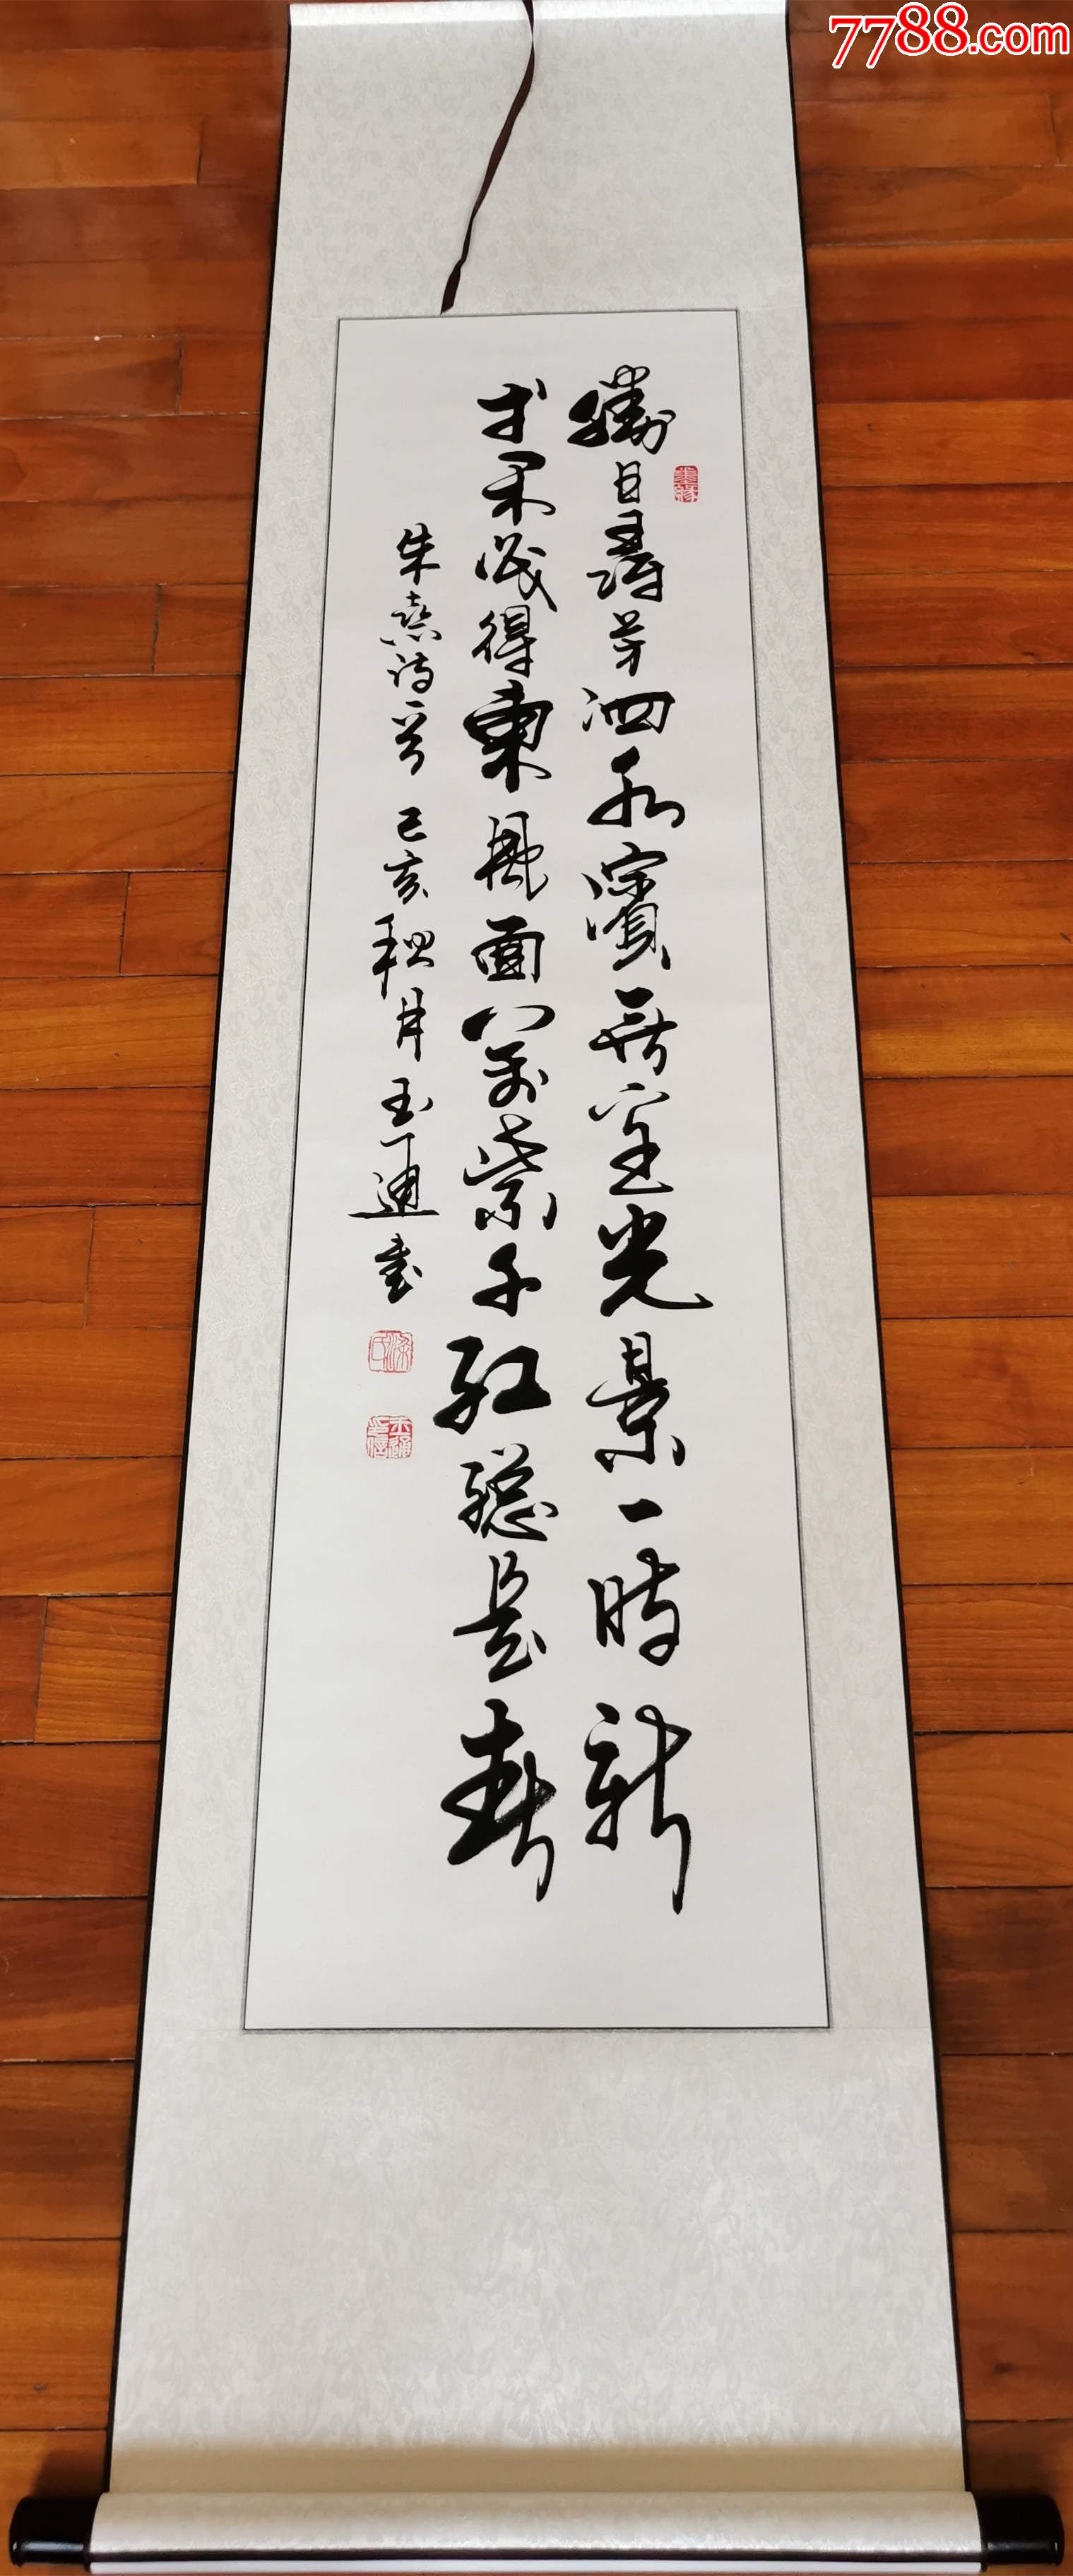 7788.com
勝日尋芳泗水濱無邊光景一時新
等閒識得東風面萬紫千紅總是春
朱熹詩一首 己亥秋月玉通書